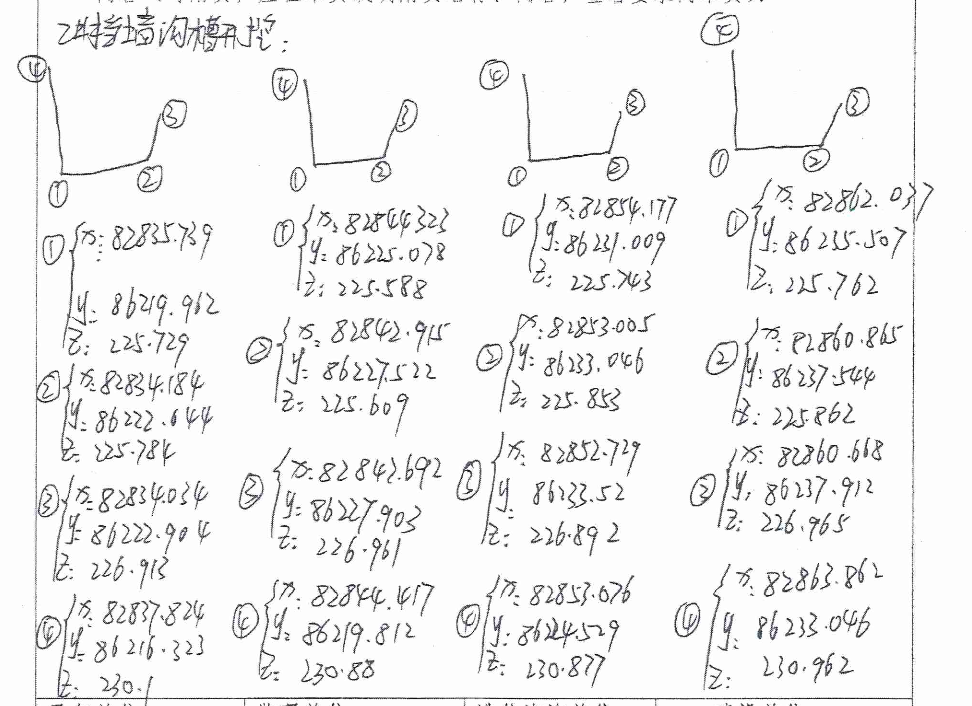 2#挡墙沟槽开挖:
④ ③ ① ②
④ ③ ① ②
④ ③ ① ②
④ ③ ① ②
① x: 82835.739
y: 86219.962
z: 225.729
② x: 82834.184
y: 86222.644
z: 225.784
③ x: 82834.034
y: 86222.904
z: 226.913
④ x: 82837.824
y: 86216.323
z: 230.1
① x: 82844.323
y: 86225.078
z: 225.588
② x: 82842.915
y: 86227.522
z: 225.609
③ x: 82842.692
y: 86227.903
z: 226.961
④ x: 82844.417
y: 86219.812
z: 230.88
① x: 82854.177
y: 86231.009
z: 225.743
② x: 82853.005
y: 86233.046
z: 225.853
③ x: 82852.729
y: 86233.52
z: 226.892
④ x: 82853.076
y: 86224.529
z: 230.877
① x: 82862.037
y: 86235.507
z: 225.762
② x: 82860.865
y: 86237.544
z: 225.862
③ x: 82860.668
y: 86237.912
z: 226.965
④ x: 82863.862
y: 86233.046
z: 230.962